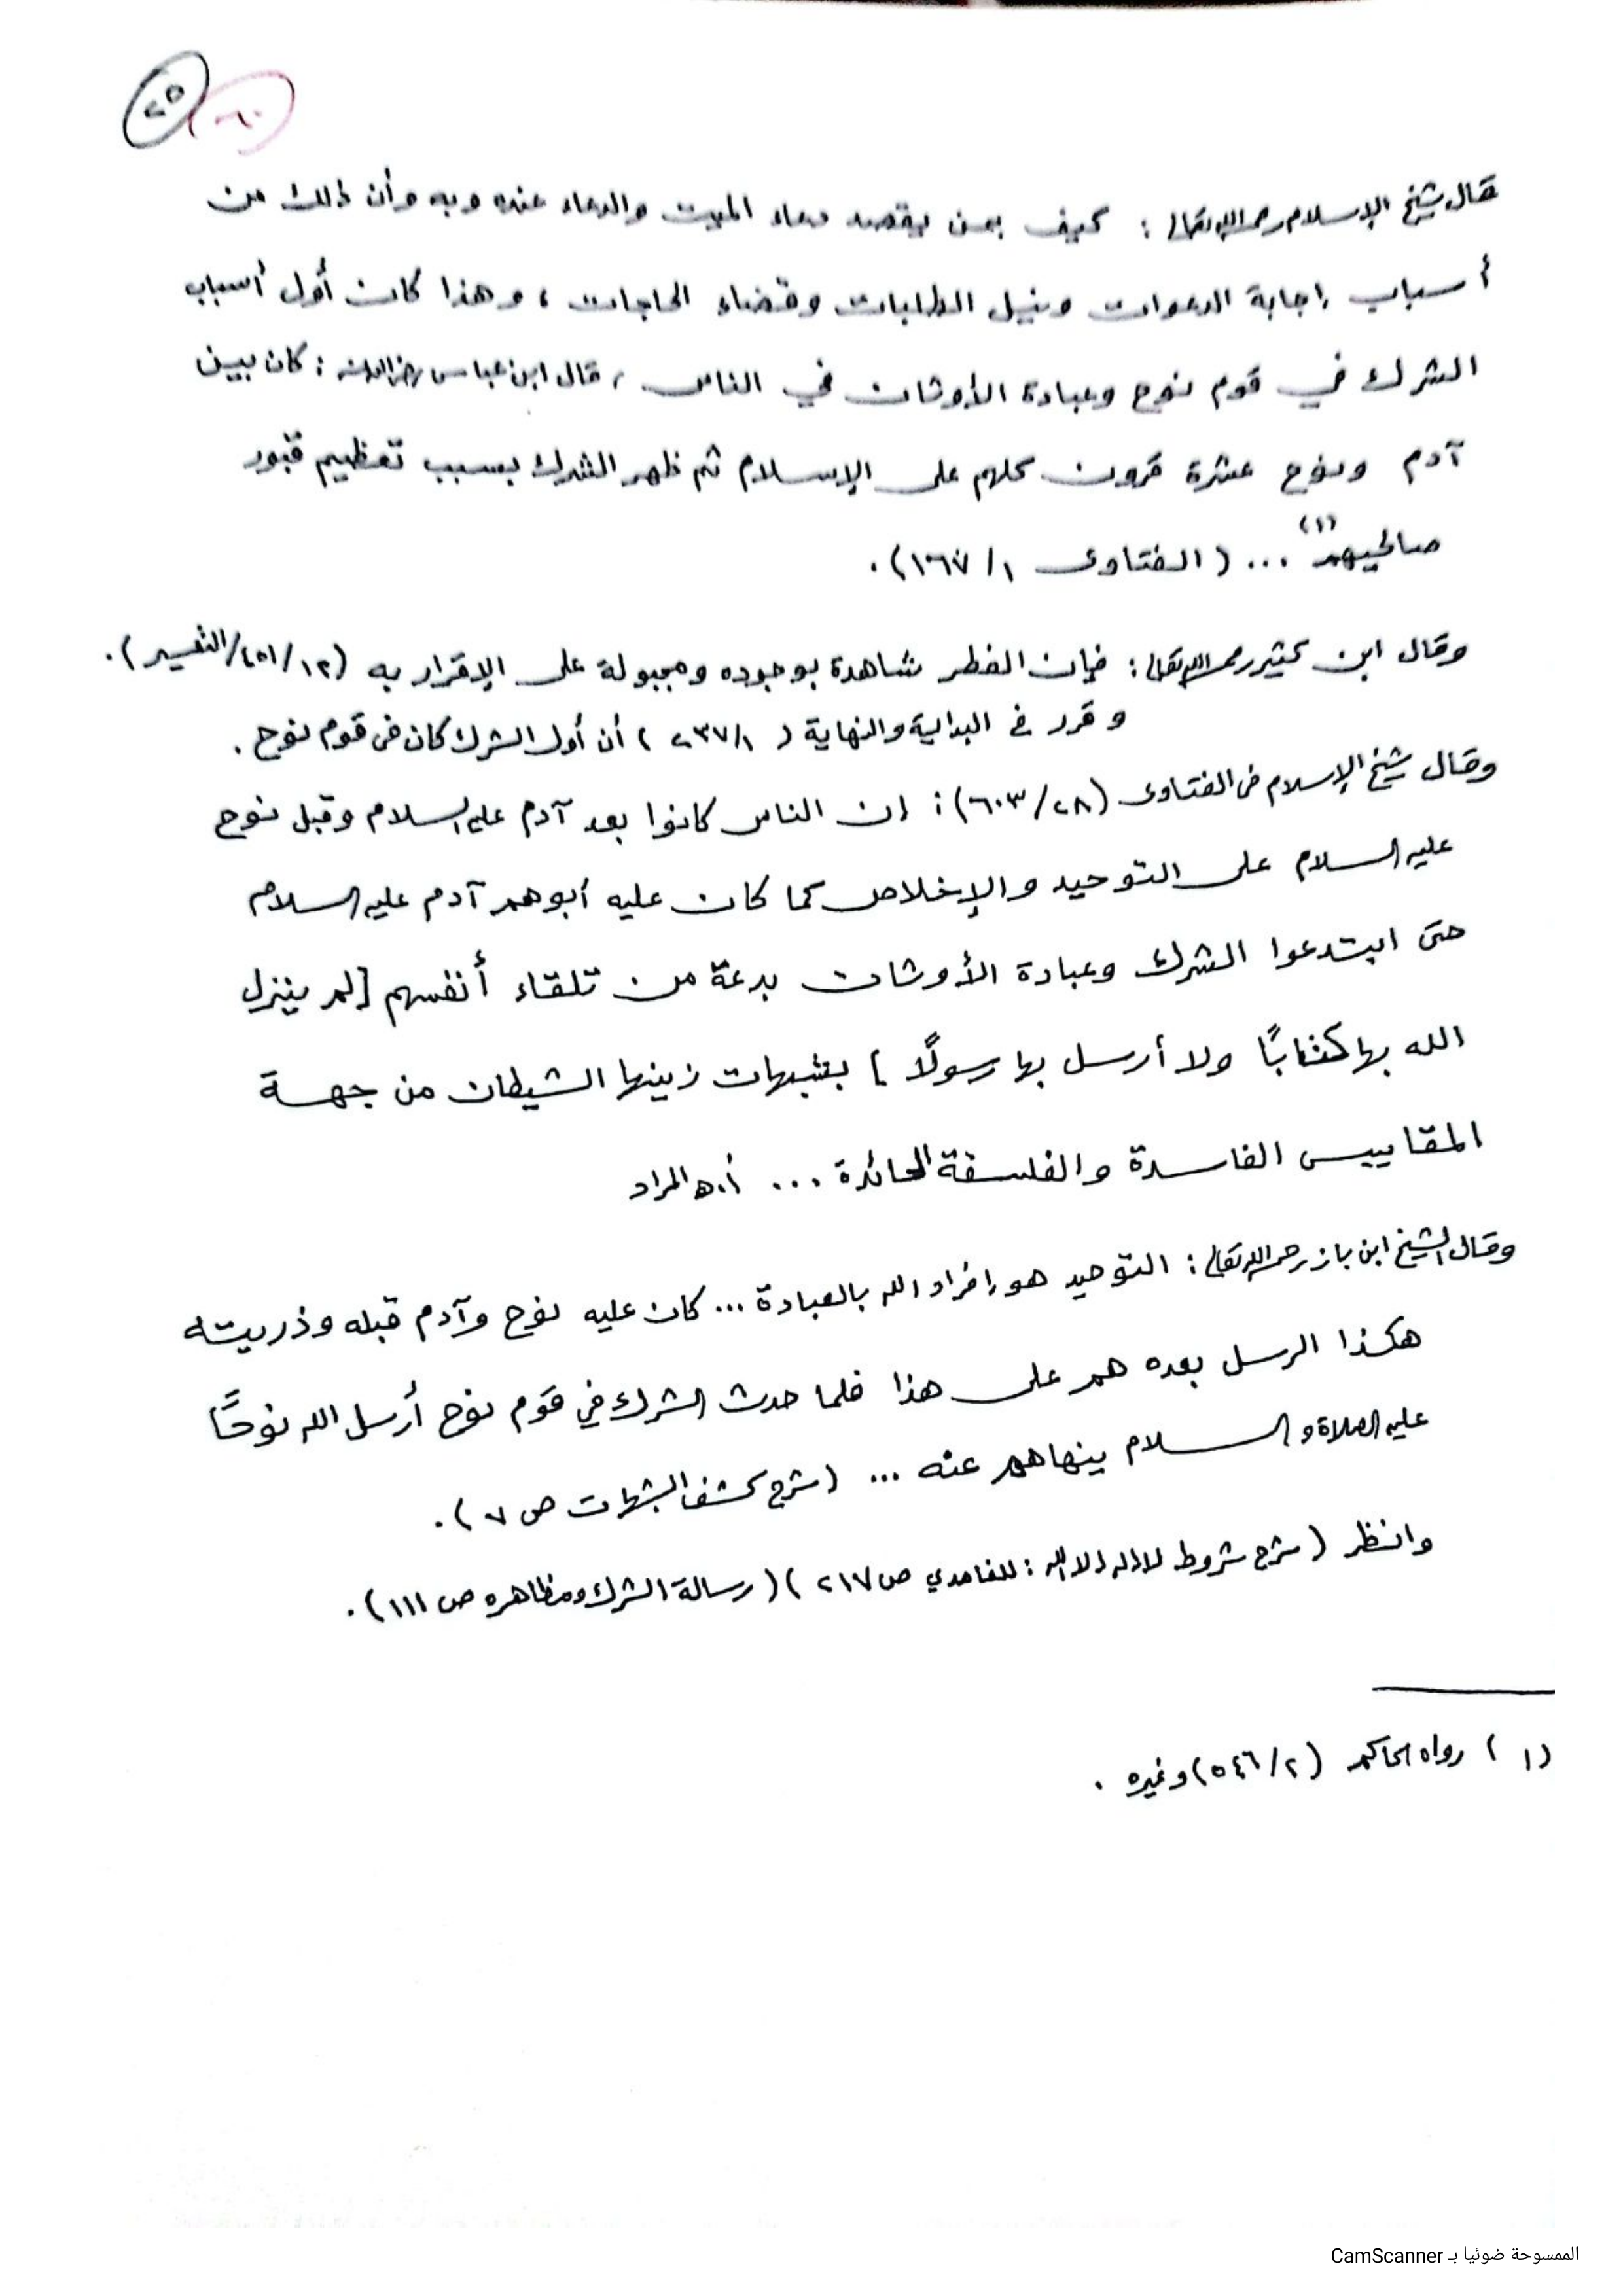 ٢٥
٦٠
قال شيخ الإسلام رحمه الله تعالى : كيف بمن يقصد دعاء الميت والدعاء عنده وبه وأن ذلك من
أسباب إجابة الدعوات ونيل الطلبات وقضاء الحاجات ، وهذا كان أول أسباب
الشرك في قوم نوح وعبادة الأوثان في الناس ، قال ابن عباس رضي الله عنه : كان بين
آدم ونوح عشرة قرون كلهم على الإسلام ثم ظهر الشرك بسبب تعظيم قبور
صالحيهم (١) ... ( الفتاوى ١ / ١٦٧ ) .
وقال ابن كثير رحمه الله تعالى : فإن الفطر شاهدة بوجوده ومجبولة على الإقرار به (١٢/٤٥١/التفسير ) .
وقرر في البداية والنهاية ( ١/ ٢٣٧ ) أن أول الشرك كان في قوم نوح .
وقال شيخ الإسلام في الفتاوى (٢٨/ ٦٠٣) : إن الناس كانوا بعد آدم عليه السلام وقبل نوح
عليه السلام على التوحيد والإخلاص كما كان عليه أبوهم آدم عليه السلام
حتى ابتدعوا الشرك وعبادة الأوثان بدعة من تلقاء أنفسهم [ لم ينزل
الله بها كتابًا ولا أرسل بها رسولًا ] بشبهات زينها الشيطان من جهة
المقاييس الفاسدة والفلسفة الحائدة ... أ.هـ المراد
وقال الشيخ ابن باز رحمه الله تعالى : التوحيد هو إفراد الله بالعبادة ... كان عليه نوح وآدم قبله وذريته
هكذا الرسل بعده هم على هذا فلما حدث الشرك في قوم نوح أرسل الله نوحًا
عليه الصلاة و السلام ينهاهم عنه ... ( شرح كشف الشبهات ص ٧ ) .
وانظر ( شرح شروط لا إله إلا الله : للغامدي ص ٢١٧ ) ( رسالة الشرك ومظاهره ص ١١١ ) .
( ١ ) رواه الحاكم ( ٢/ ٥٤٦ ) وغيره .
الممسوحة ضوئيا بـ CamScanner